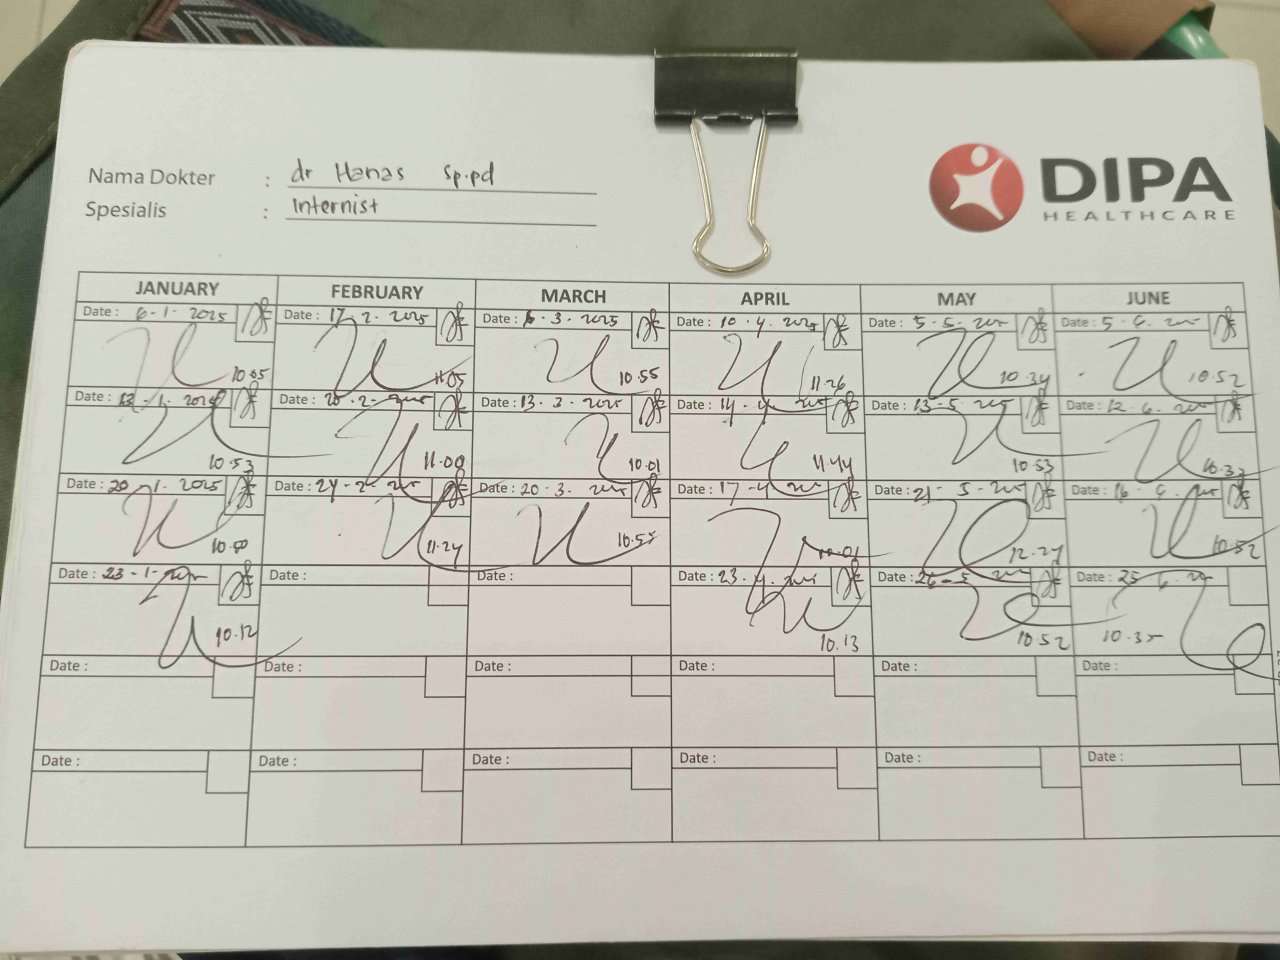 Nama Dokter : dr Hanas Sp.pd
Spesialis : Internist
DIPA
HEALTHCARE
JANUARY FEBRUARY MARCH APRIL MAY JUNE
Date : 6-1-2025 Date : 17-2-2025 Date : 6-3-2025 Date : 10-4-2025 Date : 5-5-2025 Date : 5-6-2025
10.05 11.05 10.55 11.26 10.34 10.52
Date : 13-1-2025 Date : 20-2-2025 Date : 13-3-2025 Date : 14-4-2025 Date : 13-5-2025 Date : 12-6-2025
10.53 11.00 10.01 11.44 10.53 10.33
Date : 20-1-2025 Date : 24-2-2025 Date : 20-3-2025 Date : 17-4-2025 Date : 21-5-2025 Date : 16-6-2025
10.00 11.24 10.55 10.01 12.27 10.52
Date : 23-1-2025 Date : Date : Date : 23-4-2025 Date : 26-5-2025 Date : 25-6-2025
10.12 10.13 10.52 10.35
Date : Date : Date : Date : Date : Date :
Date : Date : Date : Date : Date : Date :